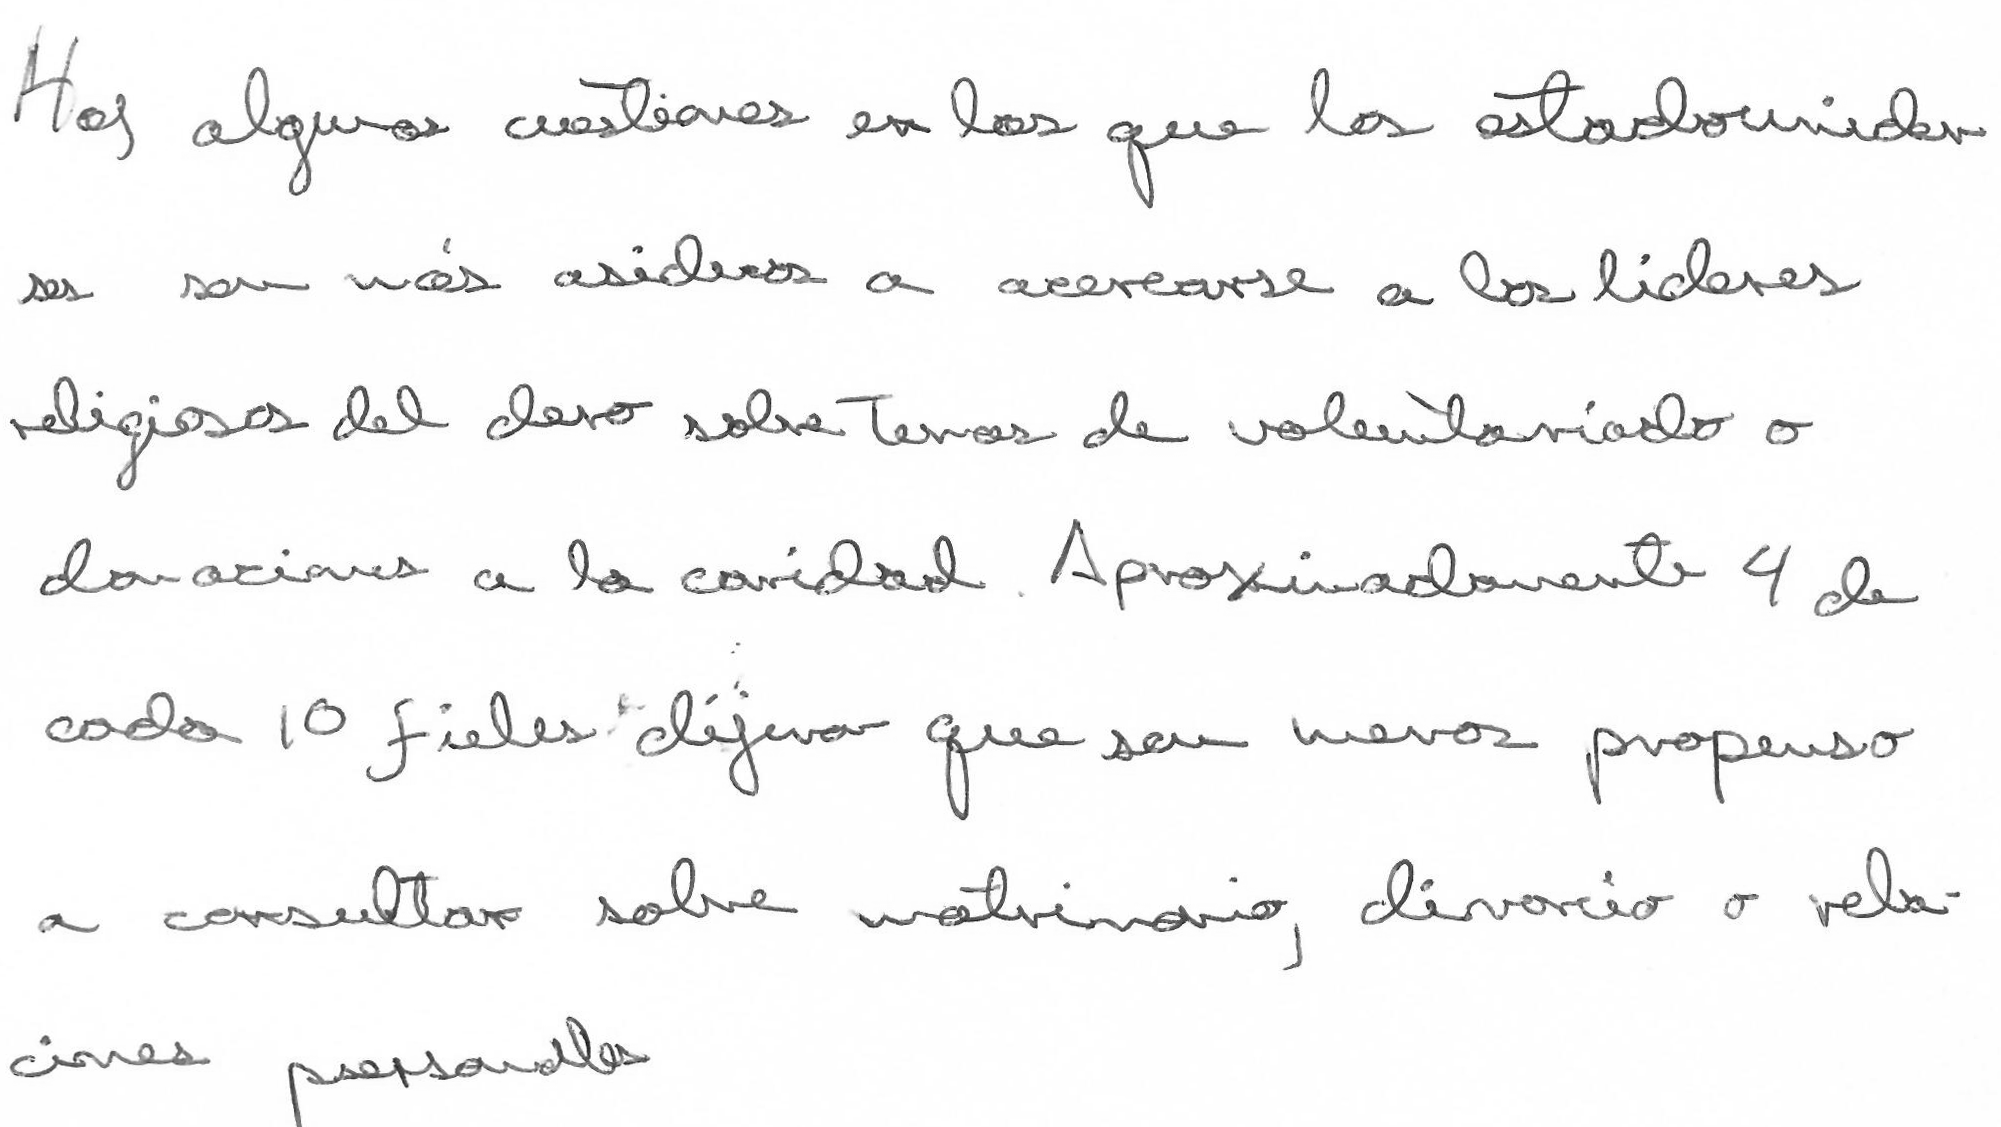 Hay algunas cuestiones en las que los estadouniden
ses son más asiduos a acercarse a los lideres
religiosos del clero sobre temas de voluntariado o
donaciones a la caridad. Aproximadamente 4 de
cada 10 fieles dijeron que son menos propenso
a consultar sobre matrimonio, divorcio o rela-
ciones personales